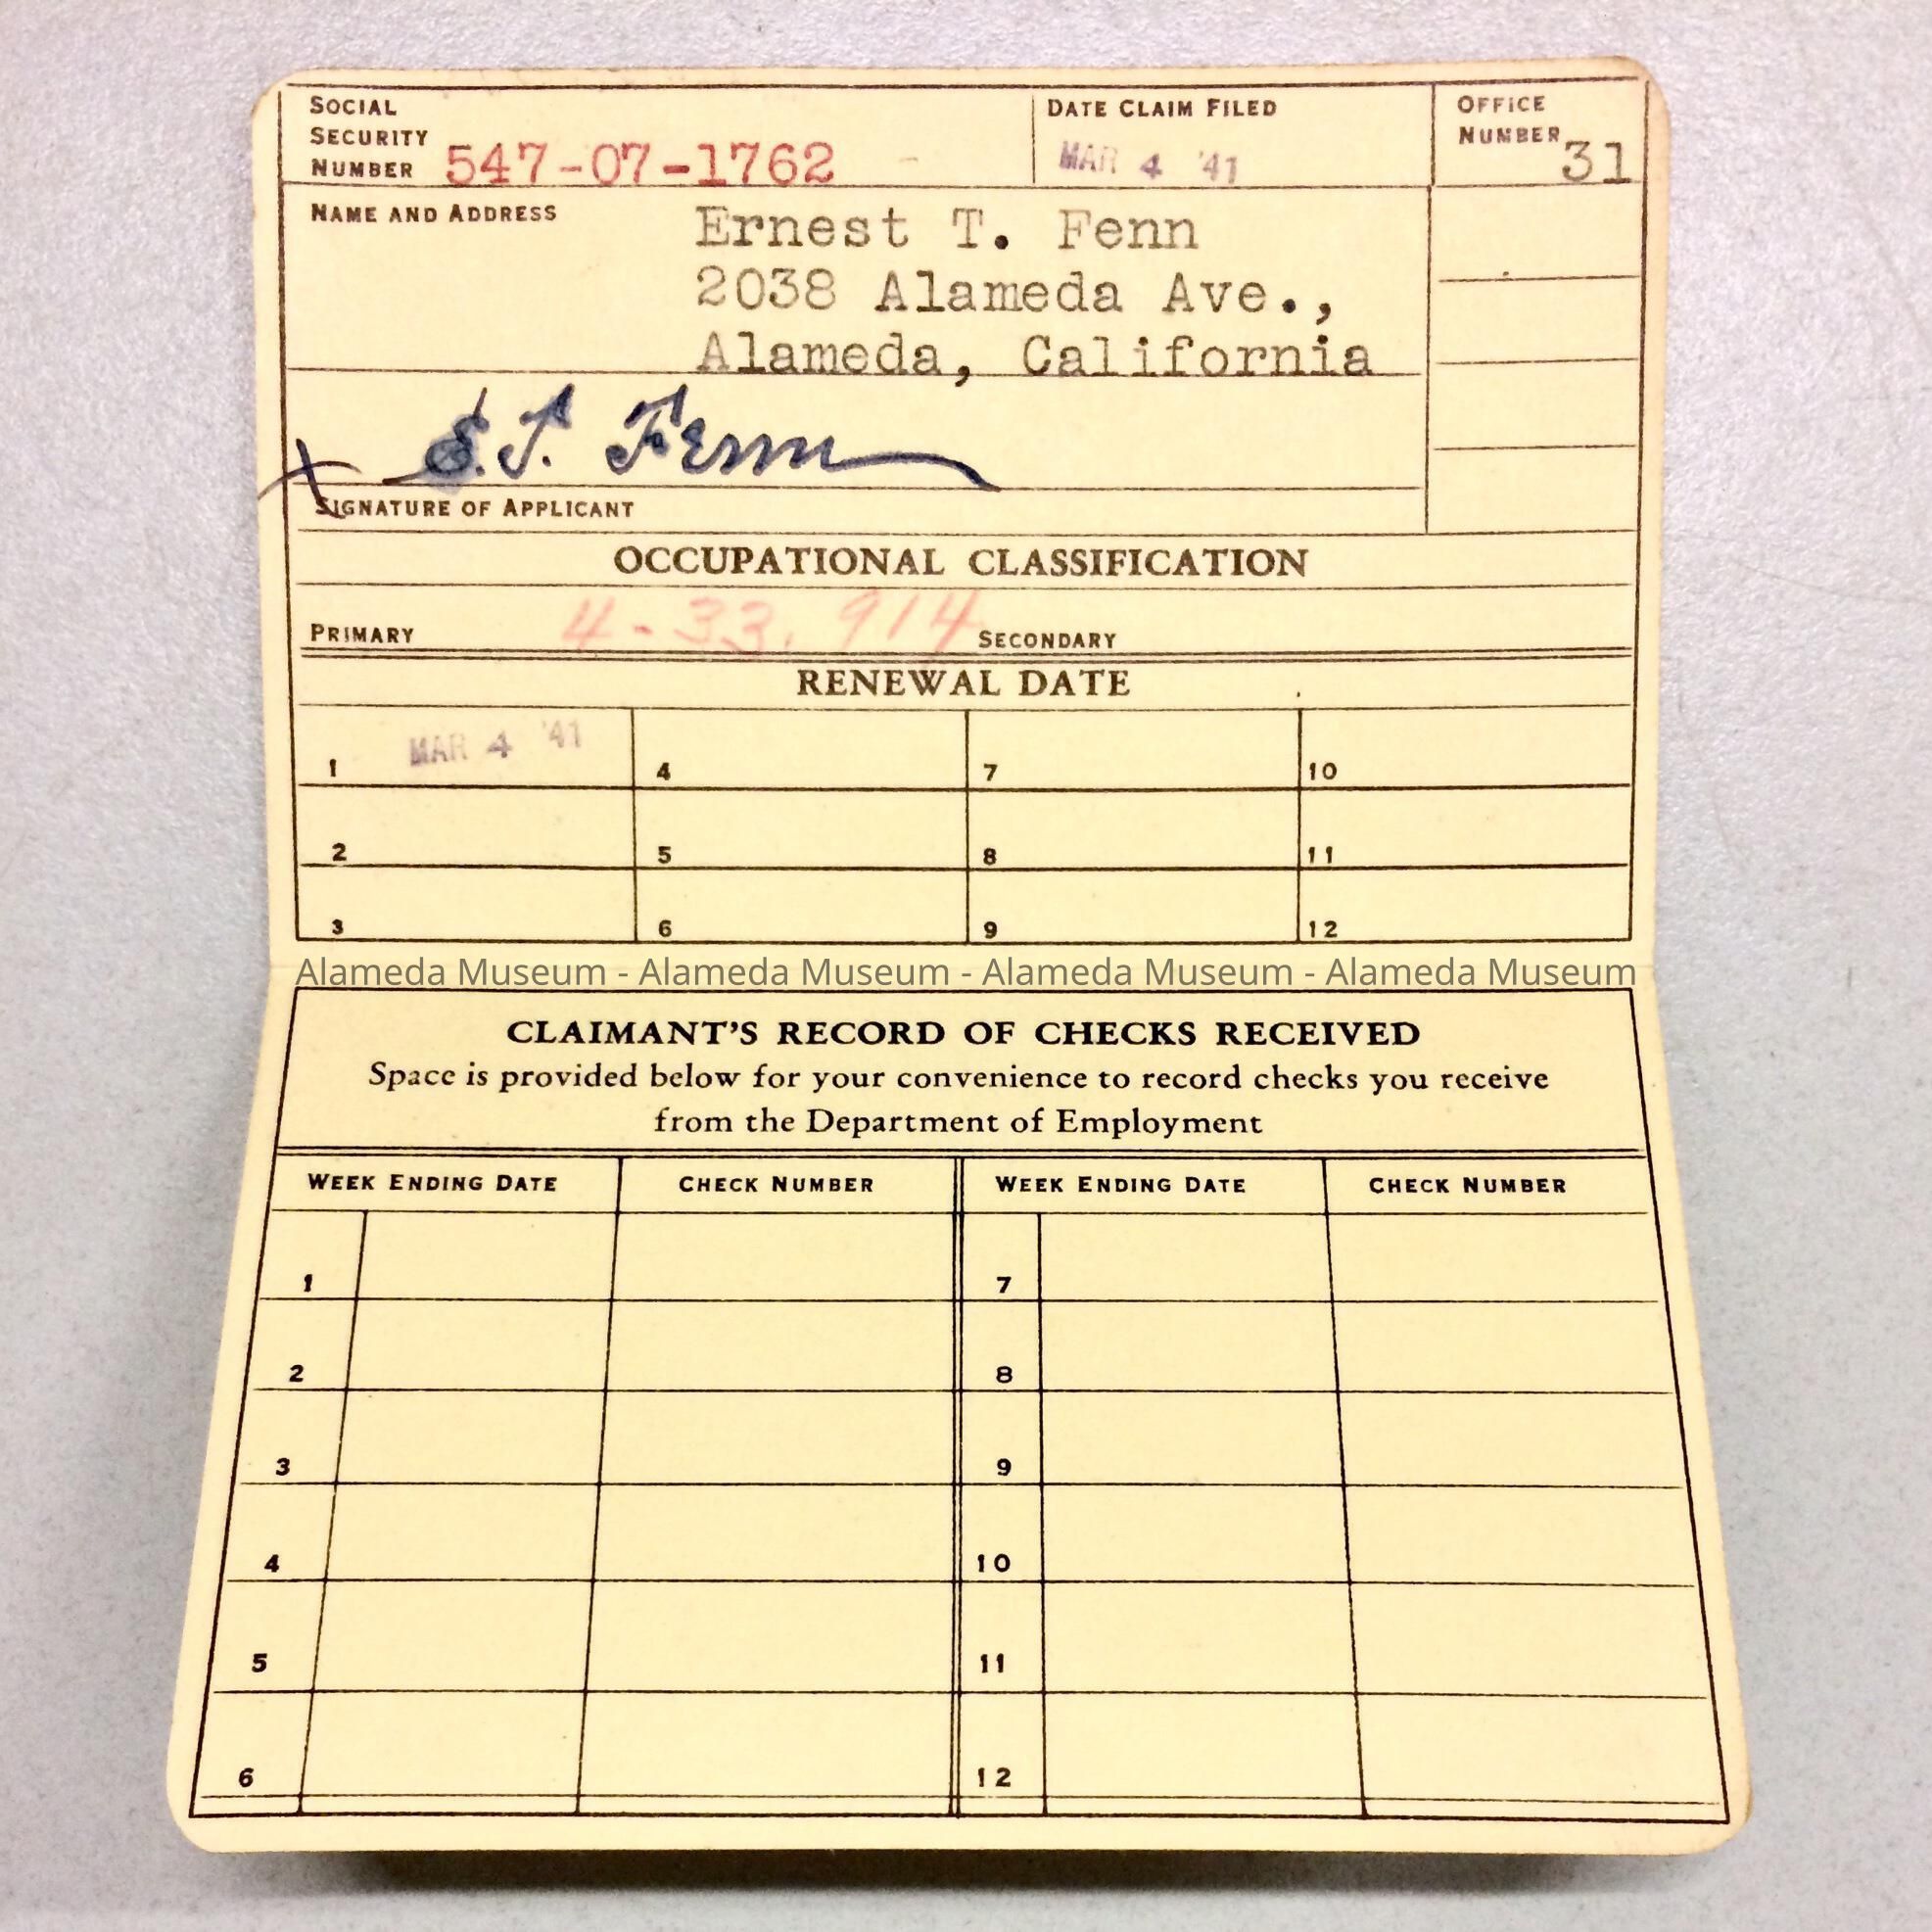 SOCIAL SECURITY NUMBER 547-07-1762
DATE CLAIM FILED MAR 4 '41
OFFICE NUMBER 31
NAME AND ADDRESS
Ernest T. Fenn
2038 Alameda Ave.,
Alameda, California
X E.T. Fenn
SIGNATURE OF APPLICANT
OCCUPATIONAL CLASSIFICATION
PRIMARY 4-33.914 SECONDARY
RENEWAL DATE
1 MAR 4 '41 4 7 10
2 5 8 11
3 6 9 12
Alameda Museum - Alameda Museum - Alameda Museum - Alameda Museum
CLAIMANT'S RECORD OF CHECKS RECEIVED
Space is provided below for your convenience to record checks you receive
from the Department of Employment
WEEK ENDING DATE CHECK NUMBER WEEK ENDING DATE CHECK NUMBER
1 7
2 8
3 9
4 10
5 11
6 12